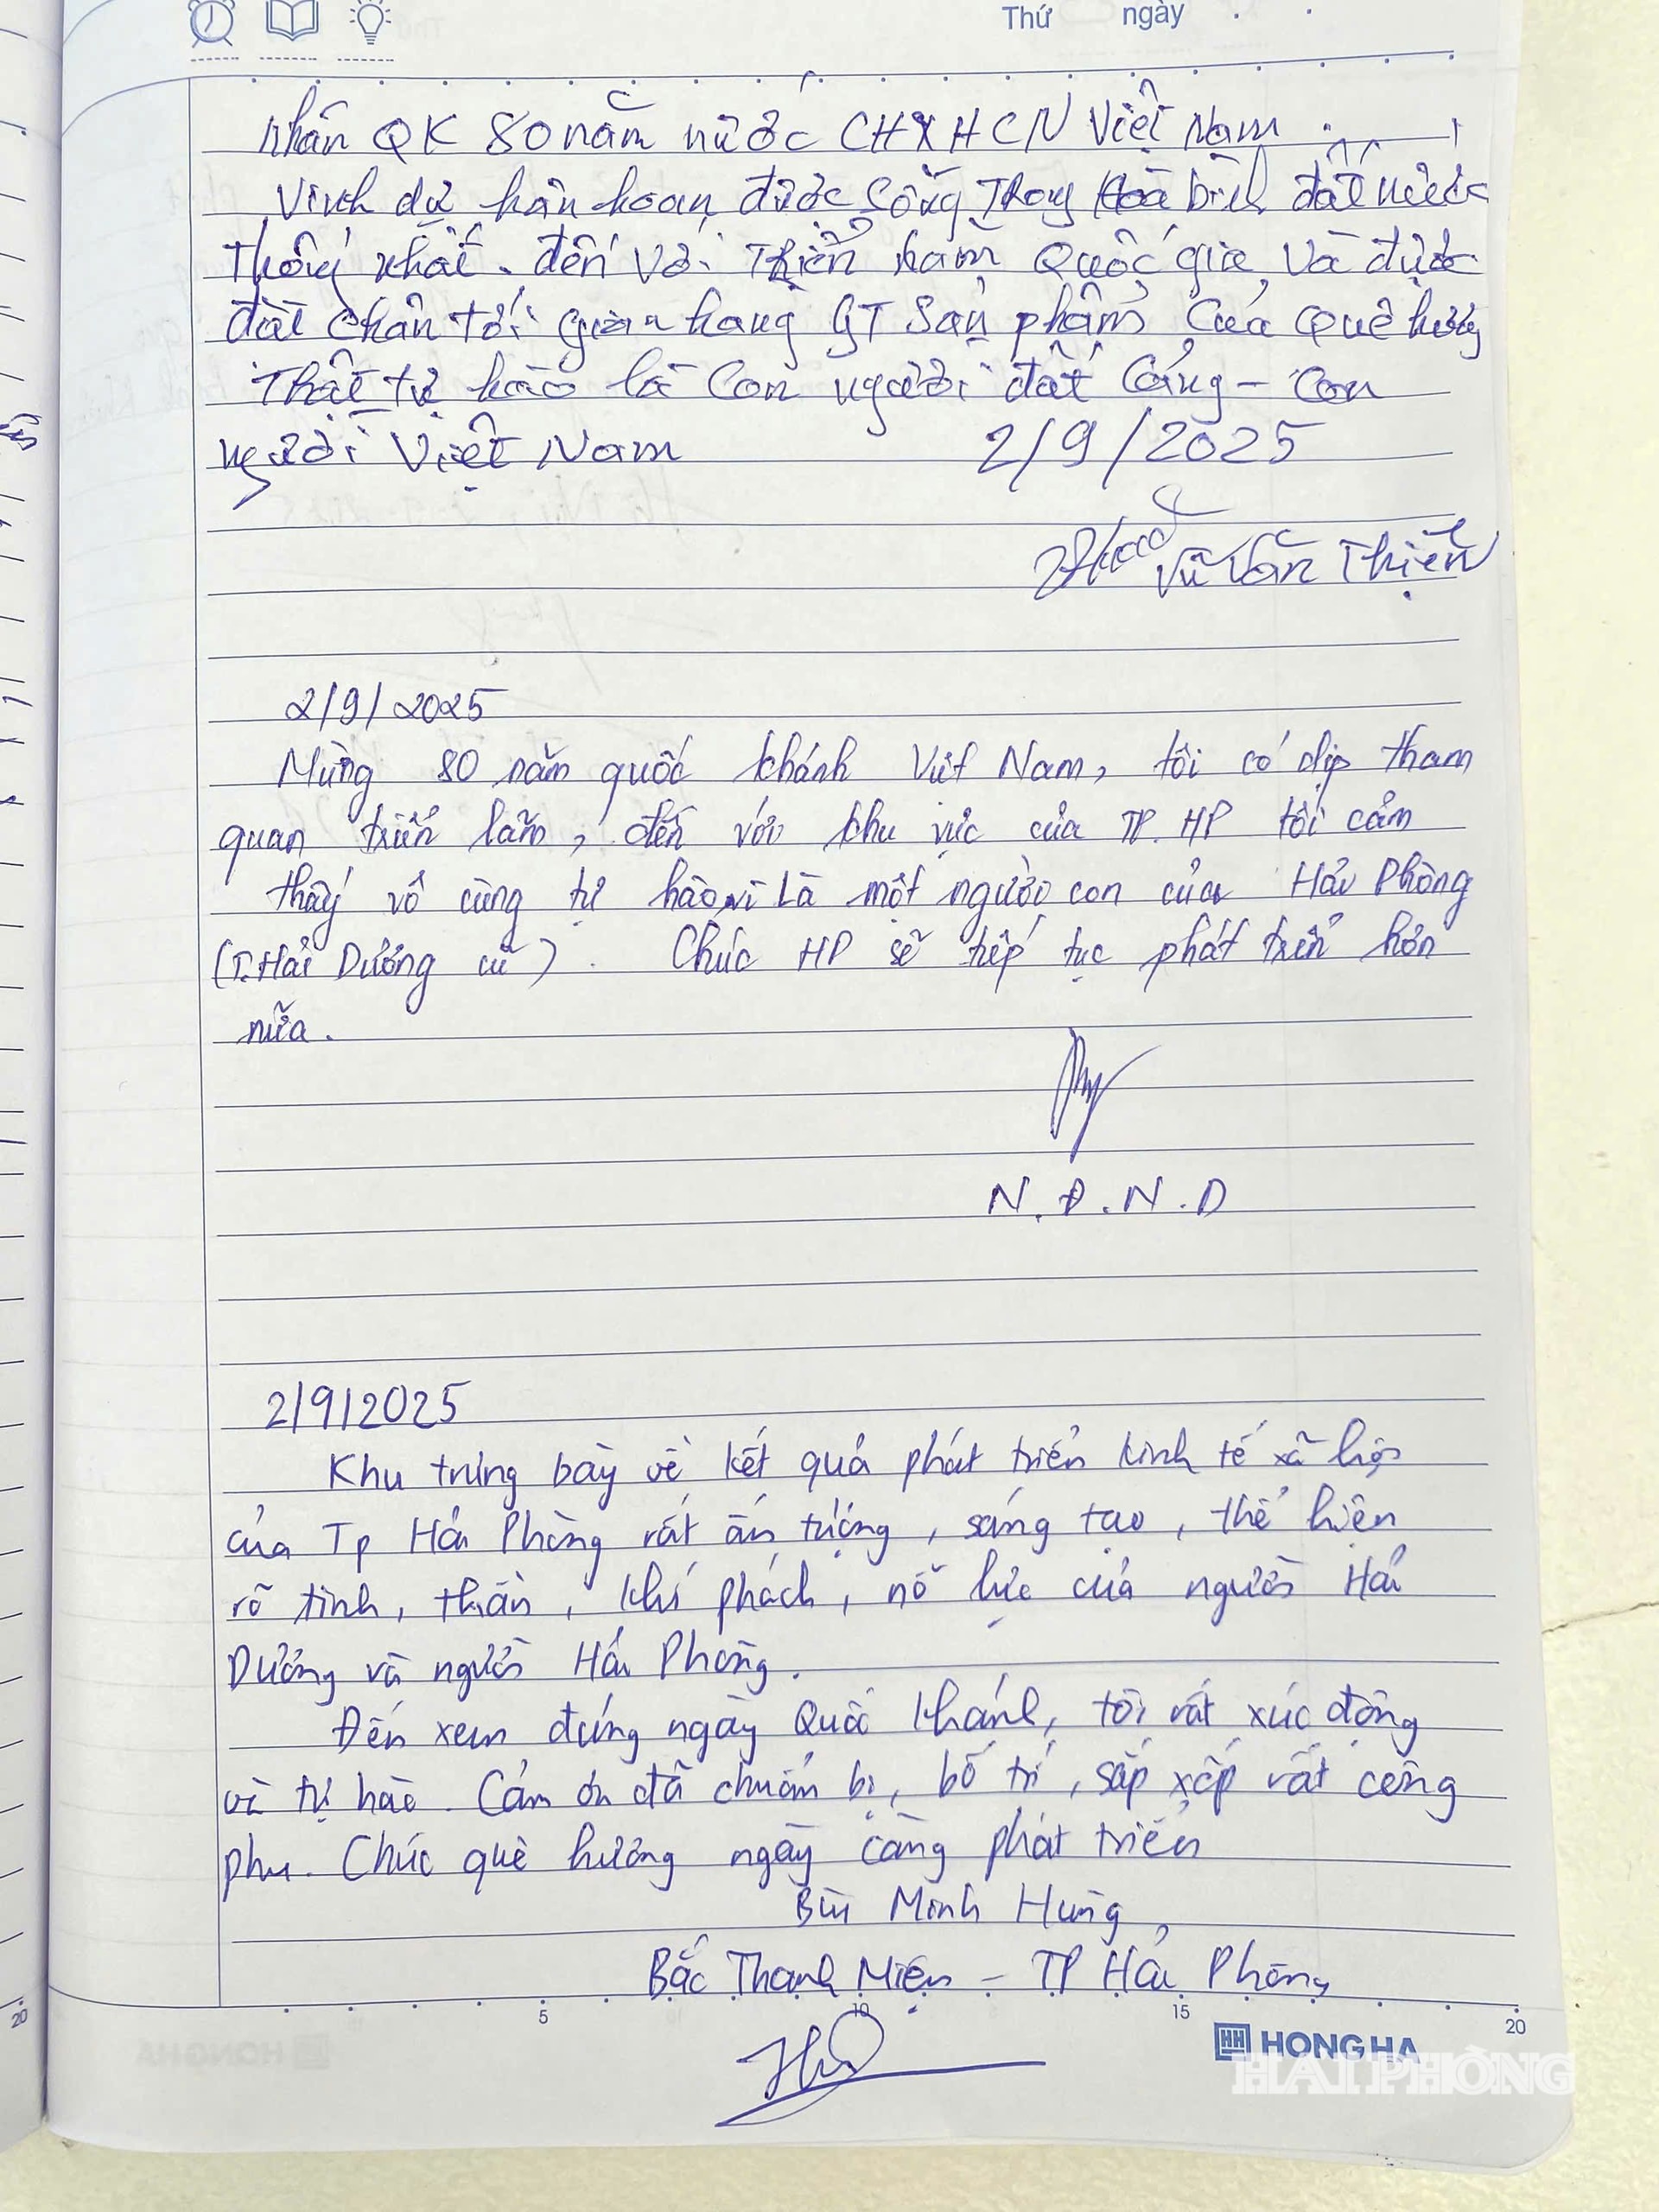 Thứ ngày
Nhân QK 80 năm nước CHXHCN Việt Nam.
Vinh dự hân hoan được sống trong Hoà bình đất nước
Thống nhất. đến với Triển lãm Quốc gia, và được
đặt chân tới gian hàng GT Sản phẩm của Quê hương
Thật tự hào là Con người đất Cảng - Con
người Việt Nam 2/9/2025
Vũ Văn Thiện
2/9/2025
Mừng 80 năm quốc khánh Việt Nam, tôi có dịp tham
quan triển lãm, đến với khu vực của TP. HP tôi cảm
thấy vô cùng tự hào vì Là một người con của Hải Phòng
(T.Hải Dương cũ). Chúc HP sẽ tiếp tục phát triển hơn
nữa.
N.Đ.N.D
2/9/2025
Khu trưng bày về kết quả phát triển kinh tế xã hội
của Tp Hải Phòng rất ấn tượng, sáng tạo, thể hiện
rõ tinh, thần, khí phách, nỗ lực của người Hải
Dương và người Hải Phòng.
Đến xem đúng ngày Quốc khánh, tôi rất xúc động
và tự hào. Cảm ơn đã chuẩn bị, bố trí, sắp xếp rất công
phu. Chúc quê hương ngày càng phát triển
Bùi Minh Hưng
Bắc Thanh Miện - TP Hải Phòng
5 10 15 20
HONG HA
HẢI PHÒNG
20